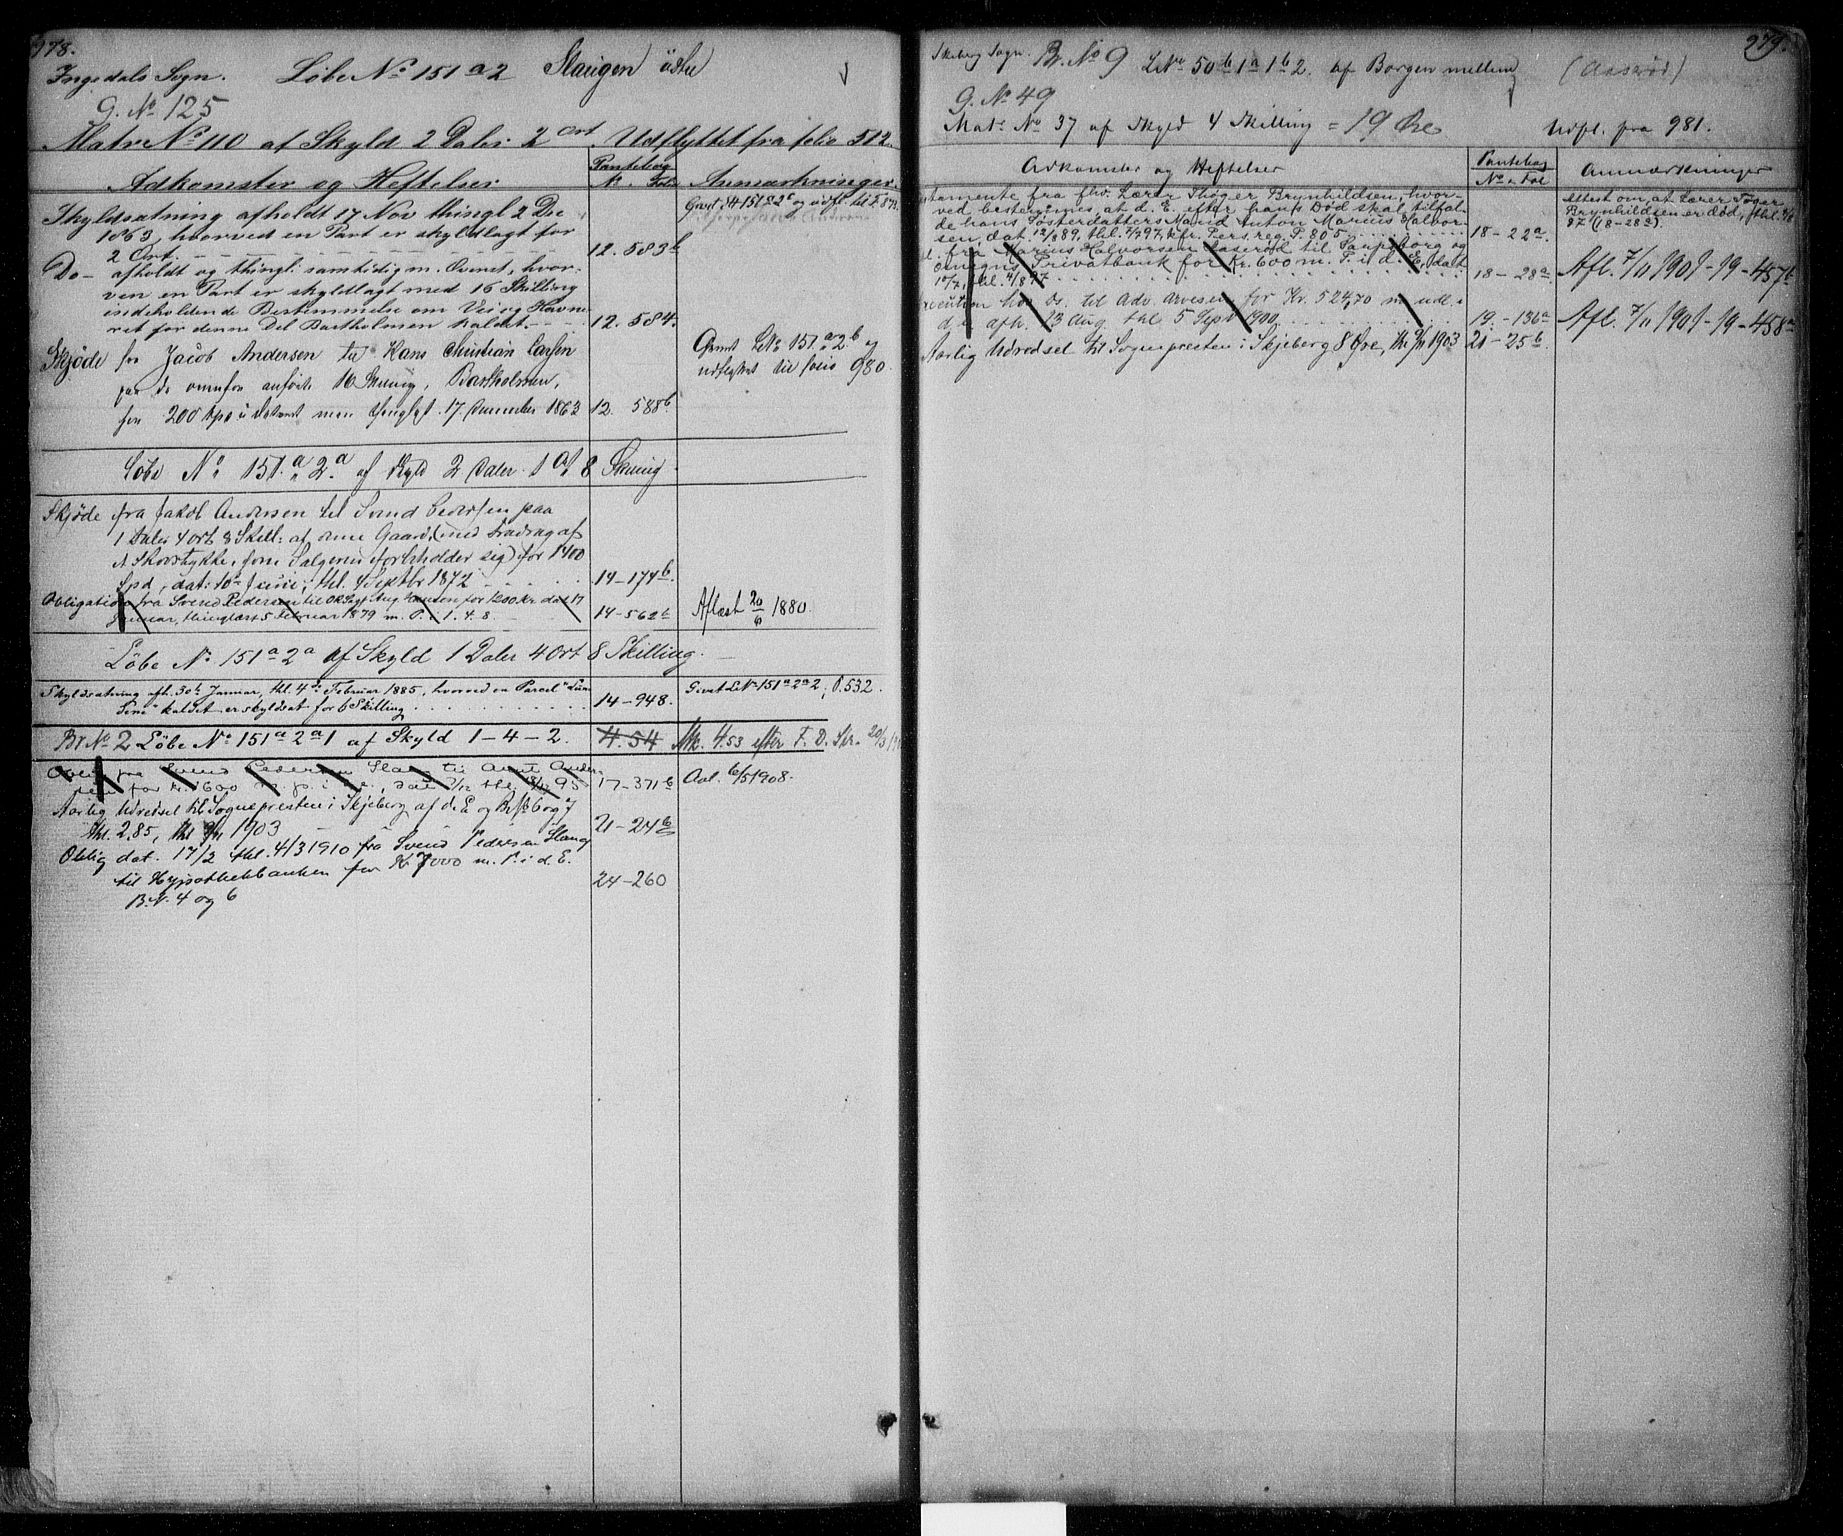 978.
Ingedals Sogn. Løbe No 151 a 2 Slaugen östre
G. No 125
Matr No 110 af Skyld 2 Daler 2 ort. Udflyttet fra folio 512.
Adkomster og Heftelser
Pantebog
N. Folio
Anmærkninger.
Skyldsætning afholdt 17 Nov thingl 2 De
1863, hvorved en Part er skyldlagt for
2 Ort.
12. 583 b
Do- afholdt og thingl. samtidig m. Ovenst, hvor-
ven en Part er skyldlagt med 16 Skilling
indeholdende Bestemmelse om Vei og Havne
ret for denne Del Bartholmen kaldet.
12. 584.
Skjøde fra Jacob Andersen til Hans Christian Larsen
paa de ovenfor anførte 16 Skilling, Bartholmen,
for 200 Spd thinglyst 17 December 1863
12. 588 b
Grenet LNo 151 a 2 b og
udflyttet til folio 980.
Løbe No 151. a 2. a af Skyld 2 Daler 1 Ort 8 Skilling
Skjøde fra Jakob Andersen til Svend Pedersen paa
1 Daler 4 ort 8 Skill: af denne Gaard, (med Fradrag af
et Skovstykke, som Sælgeren forbeholder sig) for 1400
Spd, dat: 10de Juni, thl. 4 Septbr 1872
14-174 b.
Obligation fra Svend Pedersen til O.R.Sagf. Aug. Hansen for 1200 Kr. dat 17
Januar, thinglæst 5 Februar 1879 m. P. i 1. 4. 8.
14-562 b
Aflæst 20/6 1880.
Løbe No 151 a 2 a af Skyld 1 Daler 4 Ort 8 Skilling.
Skyldsætning afh. 30te Januar, thl. 4de Februar 1885, hvorved en Parcel
kaldet er skyldsat for 6 Skilling
14-948.
Givet LNo 151 a 2 a 2, f. 532.
Br No 2 Løbe No 151 a 2 a 1 af Skyld 1-4-2.
4.54 Mk. 4.53 efter F. D. Skr. 20/3
Oblig fra Svend Pedersen Slaug til Arnt Ander-
sen for Kr 1600 m. p. i d. E., dat 7/12 thl. 18/12 95
17-371 b
Avl. 6/5 1908.
Aarlig Udredsel til Sognepresten i Skjeberg af d. E og Br.
thl. 2.85, thl 9/11 1903
21-24 b
Oblig dat. 17/2 thl. 4/3 1910 fra Svend Pedersen Slaug
til Hypothekbanken for Kr 7000 m. P. i d. E.
B.N. 4 og 6
24-260
279.
Skeberg Sogn. Br. No 9 LNo 50 b 1 a 1 b 2. af Borgen mellem (Aaserød)
G. No 49
Matr No 37 af Skyld 4 Skilling = 19 Øre Udfl. fra 981.
Adkomster og Heftelser
Pantebog
No & Fol
Anmærkninger
Testamente fra fhv. Lærer Thøger Brynhildsen, hvor-
ved bestemmes, at d. E. efter hans Død skal tilfal-
de hans Fosterdatters Mand Anton Marius Halvor-
sen, dat. 12/8 89, thl. 7/7 97, kfr. Pers. reg. P. 805
18-22 a.
Attest om, at Lærer Tøger
Brynhildsen er død, thl.
97 (18-28 a).
fra Marius Halvorsen Aaserød til Sarpsborg og
Omegns Privatbank for Kr. 600 m. P. i d. E, dat
17/7, thl. 4/8 97
18-28 a
Afl. 7/11 1901-19-457 b
Execution hos Ds. til Adv. Arvesen for Kr. 524,70 m udl. i
d. E. afh. 13 Aug. thl 5 Sept 1900
19-136 a
Afl. 7/11 1901-19-458 a
Aarlig Udredsel til Sognepresten i Skjeberg 8 Øre, thl 9/11 1903
21-25 b.